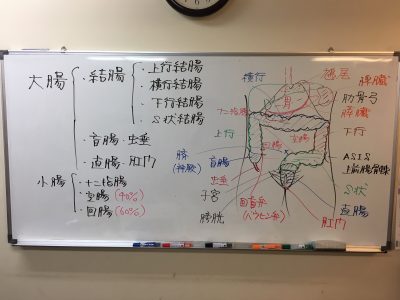 大腸
・結腸
・上行結腸
・横行結腸
・下行結腸
・S状結腸
・盲腸・虫垂
・直腸・肛門
小腸
・十二指腸
・空腸(40%)
・回腸(60%)
横行
胃
脾臓
肋骨弓
膵臓
十二指腸
上行
下行
空腸
回腸
臍
盲腸
虫垂
子宮
膀胱
回盲弁
(バウヒン弁)
ASIS
上前腸骨棘
S状
直腸
肛門